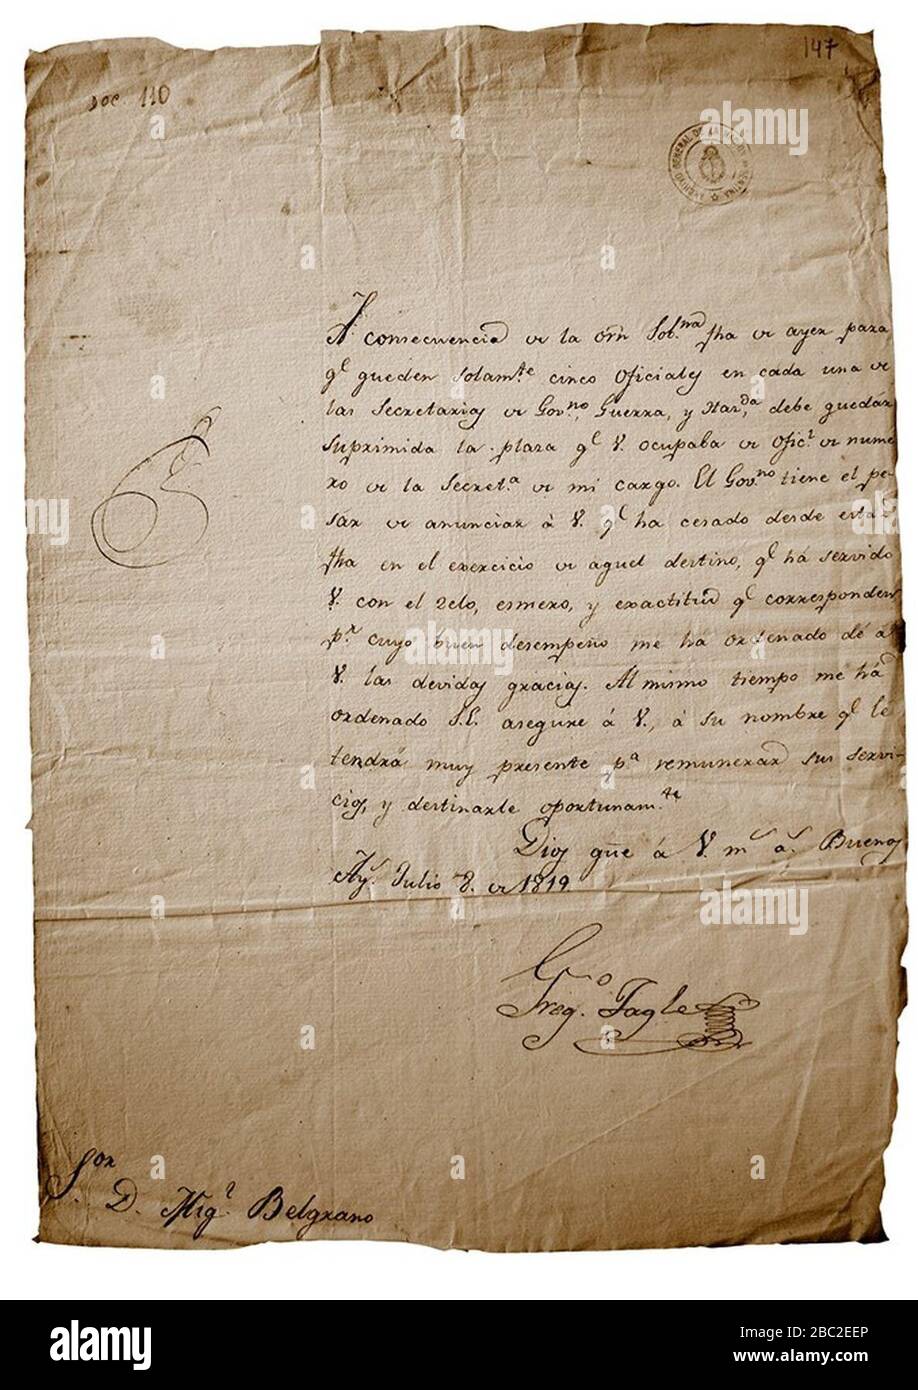 Doc. 110
147
ARCHIVO GENERAL DE LA NACION ARGENTINA
A consecuencia de la orn Sob.na fha de ayer para
q.e queden solam.te cinco oficiales en cada una de
las Secretarias de Gov.no, Guerra, y Haz.da debe quedár
suprimida la plaza q.e V. ocupaba de ofic.l de nume
ro de la Secret.a de mi cargo. El Gov.no tiene el pe-
sár de anunciar á V. q.e ha cesado desde esta
fha en el exercicio de aquel destino, q.e há servido
V. con el zelo, esmero, y exactitud q.e corresponden
p.r cuyo buen desempeño me há ordenado dé á
V. las devidas gracias. Al mismo tiempo me há
ordenado S.E. asegure á V., á su nombre q.e le
tendrá muy presente p.a remunerar sus servi-
cios, y destinarle oportunam.te
Dios gũe á V. m.s a.s Buenos
Ay.s Julio 8. de 1819
Greg.o Tagle
S.or
D. Mig.l Belgrano
alamy
Image ID: 2BC2EEP
www.alamy.com